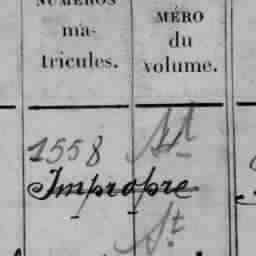 NUMÉROS
MÉRO
ma-
du
tricules.
volume.
1558
Impropre